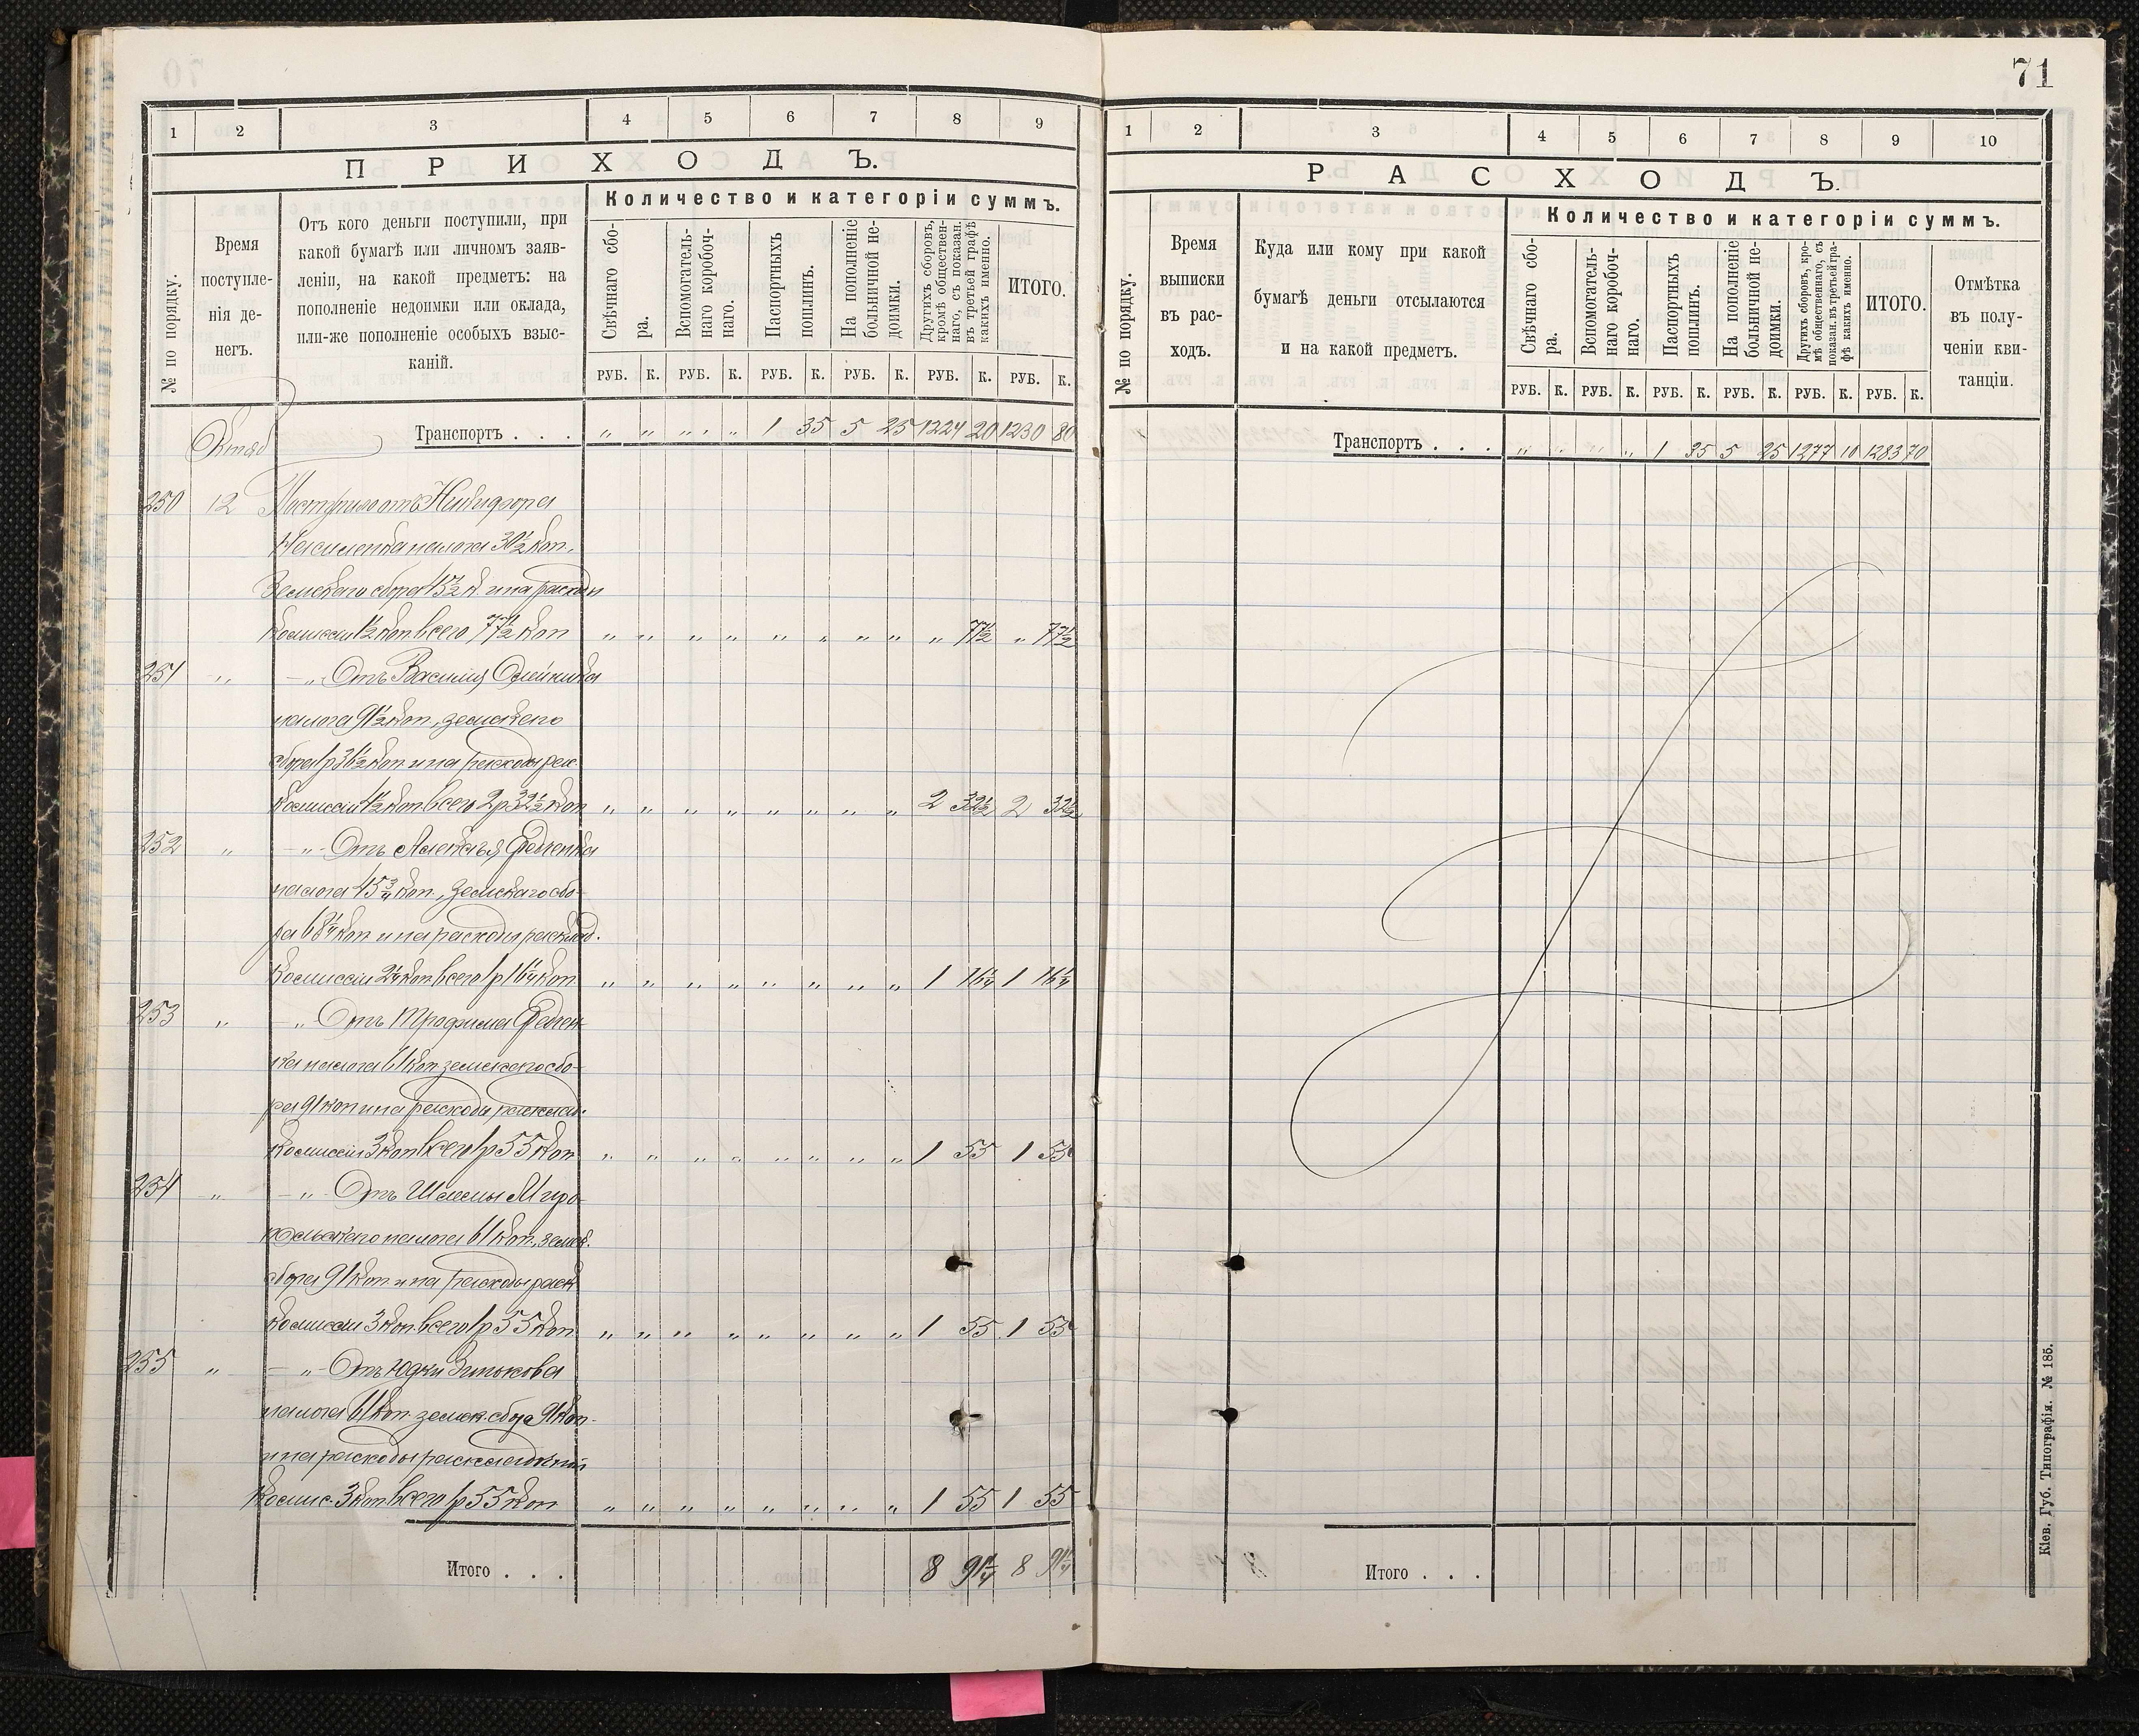 71
1 2 3 4 5 6 7 8 9
ПРИХОДЪ.
№ по порядку.
Время
поступле-
нія де-
негъ.
Отъ кого деньги поступили, при
какой бумагѣ или личномъ заяв-
леніи, на какой предметъ: на
пополненіе недоимки или оклада,
или-же пополненіе особыхъ взыс-
каній.
Количество и категоріи суммъ.
Свѣчнаго сбо-
ра.
Вспомогатель-
наго коробоч-
наго.
Паспортныхъ
пошлинъ.
На пополненіе
больничной не-
доимки.
Другихъ сборовъ,
кромѣ обществен-
наго, съ показан.
въ третьей графѣ
какихъ именно.
ИТОГО.
РУБ. К. РУБ. К. РУБ. К. РУБ. К. РУБ. К. РУБ. К.
Транспортъ . . . „ „ „ „ 1 35 5 25 1224 20 1230 80
250 12 Поступило отъ Никифора
налога 30½ коп.
Земскаго сбора 45½ к. и на расходы
Комиссіи 1½ коп. всего 77½ коп „ „ „ „ „ „ „ „ „ 77½ „ 77½
251 „ — „ Отъ Василія Олейника
налога 91½ коп., земскаго
сбора 1 р 36½ коп и на расходы рас.
Комиссіи 4½ коп. всего 2 р 32½ коп „ „ „ „ „ „ „ „ 2 32½ 2 32½
252 „ — „ Отъ Алексѣя Федченка
налога 45¾ коп., земскаго сбо-
ра 68¼ коп и на расходы расклад.
Комиссіи 2¼ коп. всего 1 р 16¼ коп. „ „ „ „ „ „ „ „ 1 16¼ 1 16¼
253 „ „ Отъ Трофима Федчен-
ка налога 61 коп земскаго сбо-
ра 91 коп и на расходы расклад.
Комиссіи 3 коп. всего 1 р 55 коп „ „ „ „ „ „ „ „ 1 55 1 55
254 „ — „ Отъ Шлемы Миро-
польскаго налога 61 коп., земск.
сбора 91 коп и на расходы раск
Комиссіи 3 коп. всего 1 р 55 коп „ „ „ „ „ „ „ „ 1 55 1 55
255 „ — „ Отъ Юдки
налога 61 коп. земск. сбора 91 коп.
и на расходы раскладочной
Комис. 3 коп. всего 1 р 55 коп „ „ „ „ „ „ „ „ 1 55 1 55
Итого . . . 8 91¼ 8 91¼
1 2 3 4 5 6 7 8 9 10
РАСХОДЪ.
№ по порядку.
Время
выписки
въ рас-
ходъ.
Куда или кому при какой
бумагѣ деньги отсылаются
и на какой предметъ.
Количество и категоріи суммъ.
Свѣчнаго сбо-
ра.
Вспомогатель-
наго коробоч-
наго.
Паспортныхъ
пошлинъ.
На пополненіе
больничной не-
доимки.
Другихъ сборовъ, кро-
мѣ общественнаго, съ
показан. въ третьей гра-
фѣ какихъ именно.
ИТОГО.
Отмѣтка
въ полу-
ченіи кви-
танціи.
РУБ. К. РУБ. К. РУБ. К. РУБ. К. РУБ. К. РУБ. К.
Транспортъ . . . „ „ „ „ 1 35 5 25 1277 10 1283 70
Итого . . .
Кіев. Губ. Типографія. № 185.